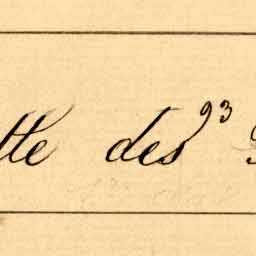 tte des 93